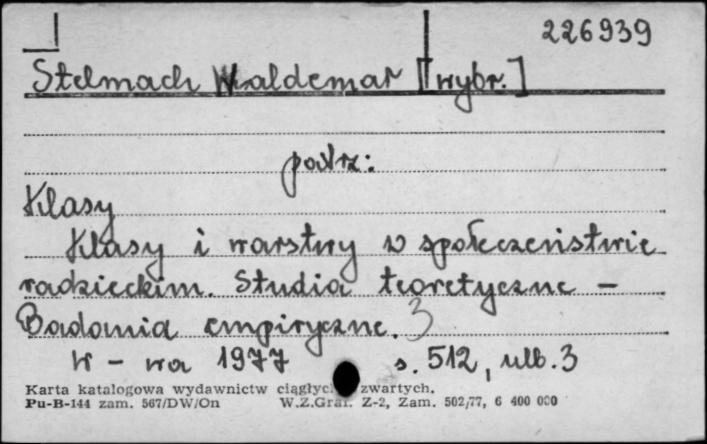 226939
Stelmach Waldemar [wybr.]
patrz:
Klasy
Klasy i warstwy w społeczeństwie
radzieckim. Studia teoretyczne –
Badania empiryczne. 3
W-wa 1977 s. 512, nlb. 3
Karta katalogowa wydawnictw ciągłyc zwartych.
Pu-B-144 zam. 567/DW/On W.Z.Graf. Z-2, Zam. 502/77, 6 400 000